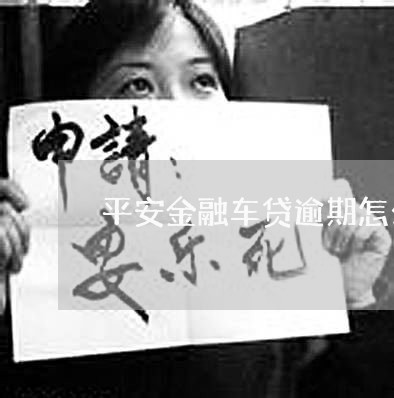 申請：
平安金融车贷逾期怎
要乐死